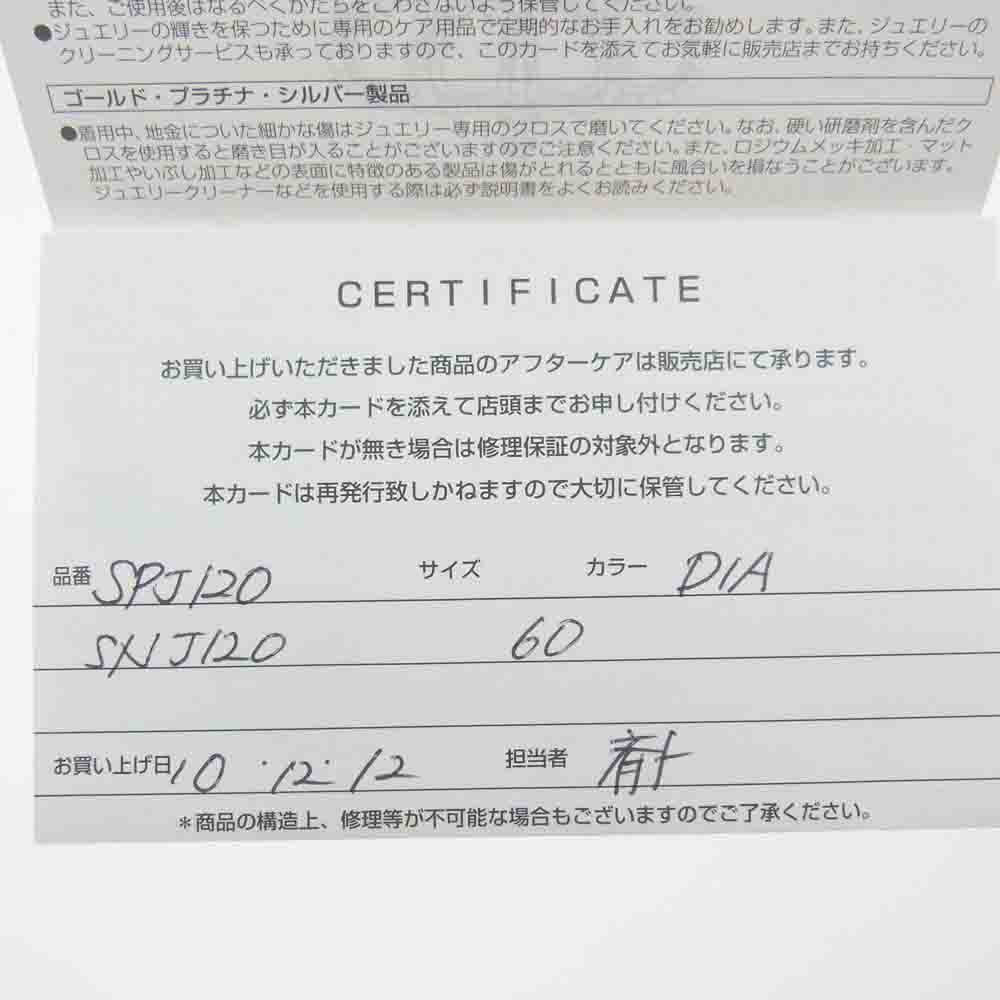 また、ご使用後はなるべくかたちをこわさないよう保管してください。
●ジュエリーの輝きを保つために専用のケア用品で定期的なお手入れをお勧めします。また、ジュエリーの
クリーニングサービスも承っておりますので、このカードを添えてお気軽に販売店までお持ちください。
ゴールド・プラチナ・シルバー製品
●着用中、地金についた細かな傷はジュエリー専用のクロスで磨いてください。なお、硬い研磨剤を含んだク
ロスを使用すると磨き目が入ることがございますのでご注意ください。また、ロジウムメッキ加工・マット
加工やいぶし加工などの表面に特徴のある製品は傷がとれるとともに風合いを損なうことがございます。
ジュエリークリーナーなどを使用する際は必ず説明書をよくお読みください。
CERTIFICATE
お買い上げいただきました商品のアフターケアは販売店にて承ります。
必ず本カードを添えて店頭までお申し付けください。
本カードが無き場合は修理保証の対象外となります。
本カードは再発行致しかねますので大切に保管してください。
品番 SPJ120 サイズ カラー DIA
SNJ120 60
お買い上げ日 10・12・12 担当者
＊商品の構造上、修理等が不可能な場合もございますのでご了承ください。